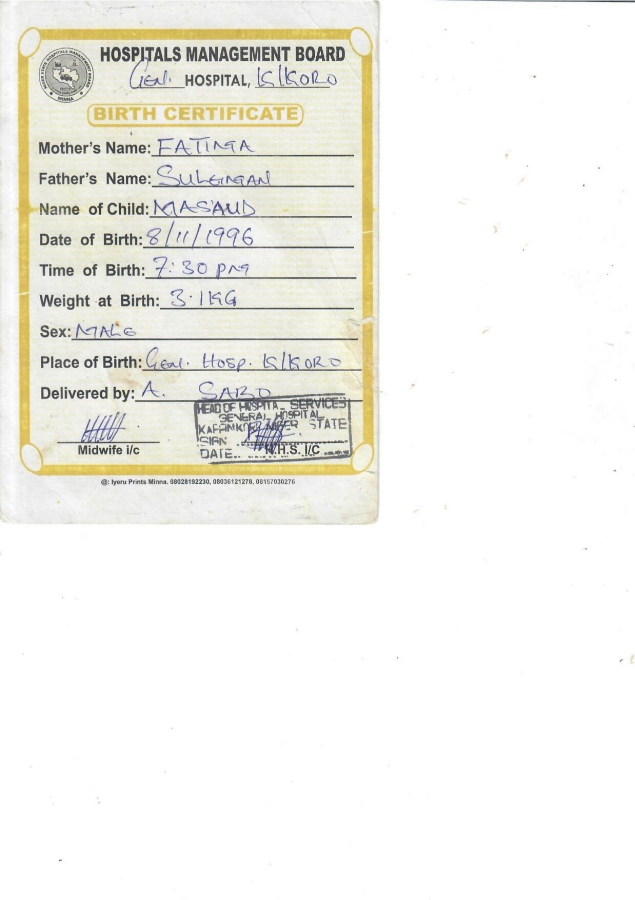 HOSPITALS MANAGEMENT BOARD
Gen. HOSPITAL, K/KORO
BIRTH CERTIFICATE
Mother's Name: FATIMA
Father's Name: SULEIMAN
Name of Child: MASAUD
Date of Birth: 8/11/1996
Time of Birth: 7:30 pm
Weight at Birth: 3.1KG
Sex: MALE
Place of Birth: Gen. Hosp. K/KORO
Delivered by: A. SABO
HEAD OF HOSPITAL SERVICES
GENERAL HOSPITAL
NIGER STATE
SIGN
DATE
Midwife i/c
H.S. I/C
@: Iyeru Prints Minna. 08028192230, 08036121278, 08157030276